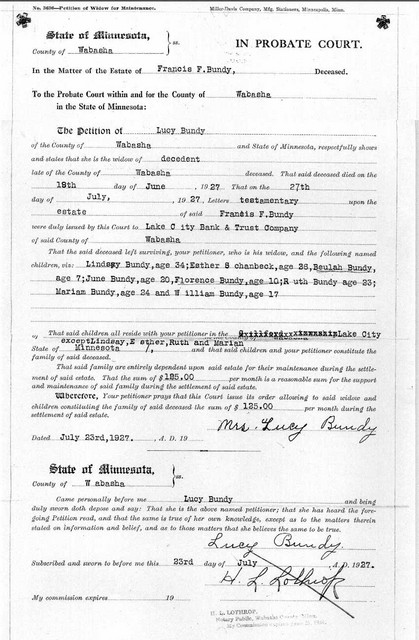 No. 3638—Petition of Widow for Maintenance. Miller-Davis Company, Mfg. Stationers, Minneapolis, Minn.
State of Minnesota, } ss.
County of Wabasha
IN PROBATE COURT.
In the Matter of the Estate of Francis F.Bundy, Deceased.
To the Probate Court within and for the County of Wabasha
in the State of Minnesota:
The Petition of Lucy Bundy
of the County of Wabasha and State of Minnesota, respectfully shows
and states that she is the widow of decedent
late of the County of Wabasha deceased. That said deceased died on the
18th day of June 1927. That on the 27th
day of July, , 1927 Letters testamentary upon the
estate of said Francis F.Bundy
were duly issued by this Court to Lake City Bank & Trust Company
of said County of Wabasha
That the said deceased left surviving, your petitioner, who is his widow, and the following named
children, viz: Lindsay Bundy, age 34; Esther S chanbeck, age 26, Beulah Bundy,
age 7; June Bundy, age 20, Florence Bundy, age 10; R uth Bundy age 23;
Mariam Bundy, age 24 and W illiam Bundy, age 17
That said children all reside with your petitioner in the Lake City
except Lindsay, E sther, Ruth and Mariam
State of Minnesota , and that said children and your petitioner constitute the
family of said deceased.
That said family are entirely dependent upon said estate for their maintenance during the settle-
ment of said estate. That the sum of $125.00 per month is a reasonable sum for the support
and maintenance of said family during the settlement of said estate.
Wherefore, Your petitioner prays that this Court issue its order allowing to said widow and
children constituting the family of said deceased the sum of $ 125.00 per month during the
settlement of said estate.
Mrs. Lucy Bundy
Dated July 23rd, 1927. , A. D. 19
State of Minnesota, } ss.
County of W abasha
Came personally before me Lucy Bundy and being
duly sworn doth depose and say: That she is the above named petitioner; that she has heard the fore-
going Petition read, and that the same is true of her own knowledge, except as to the matters therein
stated on information and belief, and as to those matters that she believes the same to be true.
Lucy Bundy.
Subscribed and sworn to before me this 23rd day of July A.D. 1927.
H. L. Lothrop
My commission expires 19
H. L. LOTHROP,
Notary Public, Wabasha County, Minn.
My Commission expires